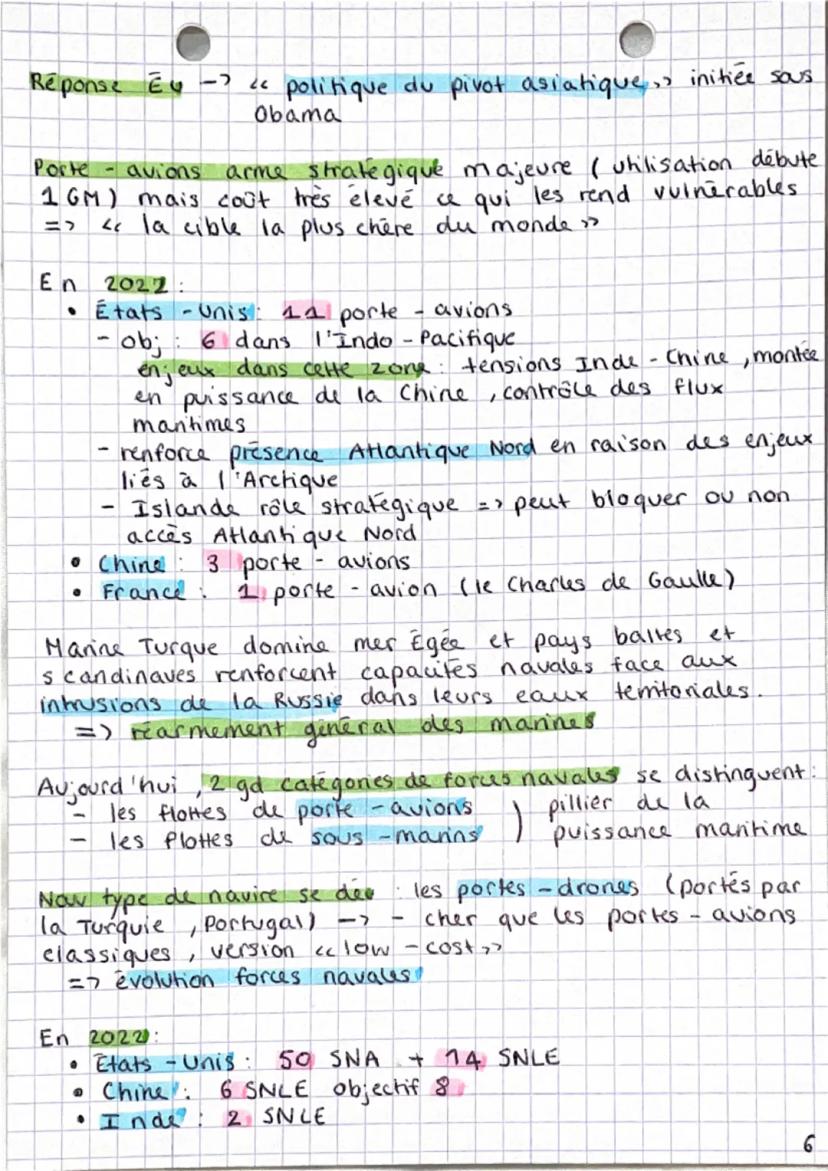 Réponse ÉU -> << politique du pivot asiatique >> initiée sous
Obama
Porte - avions arme stratégique majeure ( utilisation débute
1GM) mais coût très élevé ce qui les rend vulnérables
=> << la cible la plus chère du monde >>
En 2022 :
• États - Unis : 11 porte - avions
- obj : 6 dans l'Indo - Pacifique
enjeux dans cette zone : tensions Inde - Chine , montée
en puissance de la Chine , contrôle des flux
maritimes
- renforce présence Atlantique Nord en raison des enjeux
liés à l'Arctique
- Islande rôle stratégique => peut bloquer ou non
accès Atlantique Nord
• Chine : 3 porte - avions
• France : 1 porte - avion ( le Charles de Gaulle )
Marine Turque domine mer Égée et pays baltes et
scandinaves renforcent capacités navales face aux
intrusions de la Russie dans leurs eaux territoriales.
=> réarmement général des marines
Aujourd'hui , 2 gd catégories de forces navales se distinguent :
- les flottes de porte - avions ) pillier de la
- les flottes de sous - marins puissance maritime
Nouv type de navire se dév : les portes - drones ( portés par
la Turquie , Portugal ) -> - cher que les portes - avions
classiques , version << low - cost >>
=> évolution forces navales
En 2022 :
• États - Unis : 50 SNA + 14 SNLE
• Chine : 6 SNLE objectif 8
• Inde : 2 SNLE
6